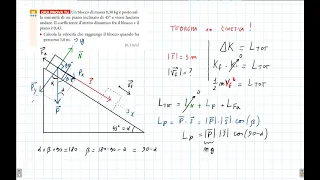 ORA PROVA TU Un blocco di massa 8,00 kg è posto sul-
la sommità di un piano inclinato di 45° e viene lasciato
andare. Il coefficiente d'attrito dinamico fra il blocco e il
piano è 0,43.
▸ Calcola la velocità che raggiunge il blocco quando ha
percorso 5,0 m.
TEOREMA DI CINETICA!
ΔK = L_TOT
K_f - K_i = L_TOT
|s⃗| = 5m
|v⃗_f| = ?
L_TOT = L_N + L_P + L_Fa
L_P = P⃗ · s⃗ = |P⃗| |s⃗| cos(β)
L_P = |P⃗| |s⃗| cos(90-α)
mg
45° = α
α + β + 90 = 180 β = 180 - 90 - α = 90 - α